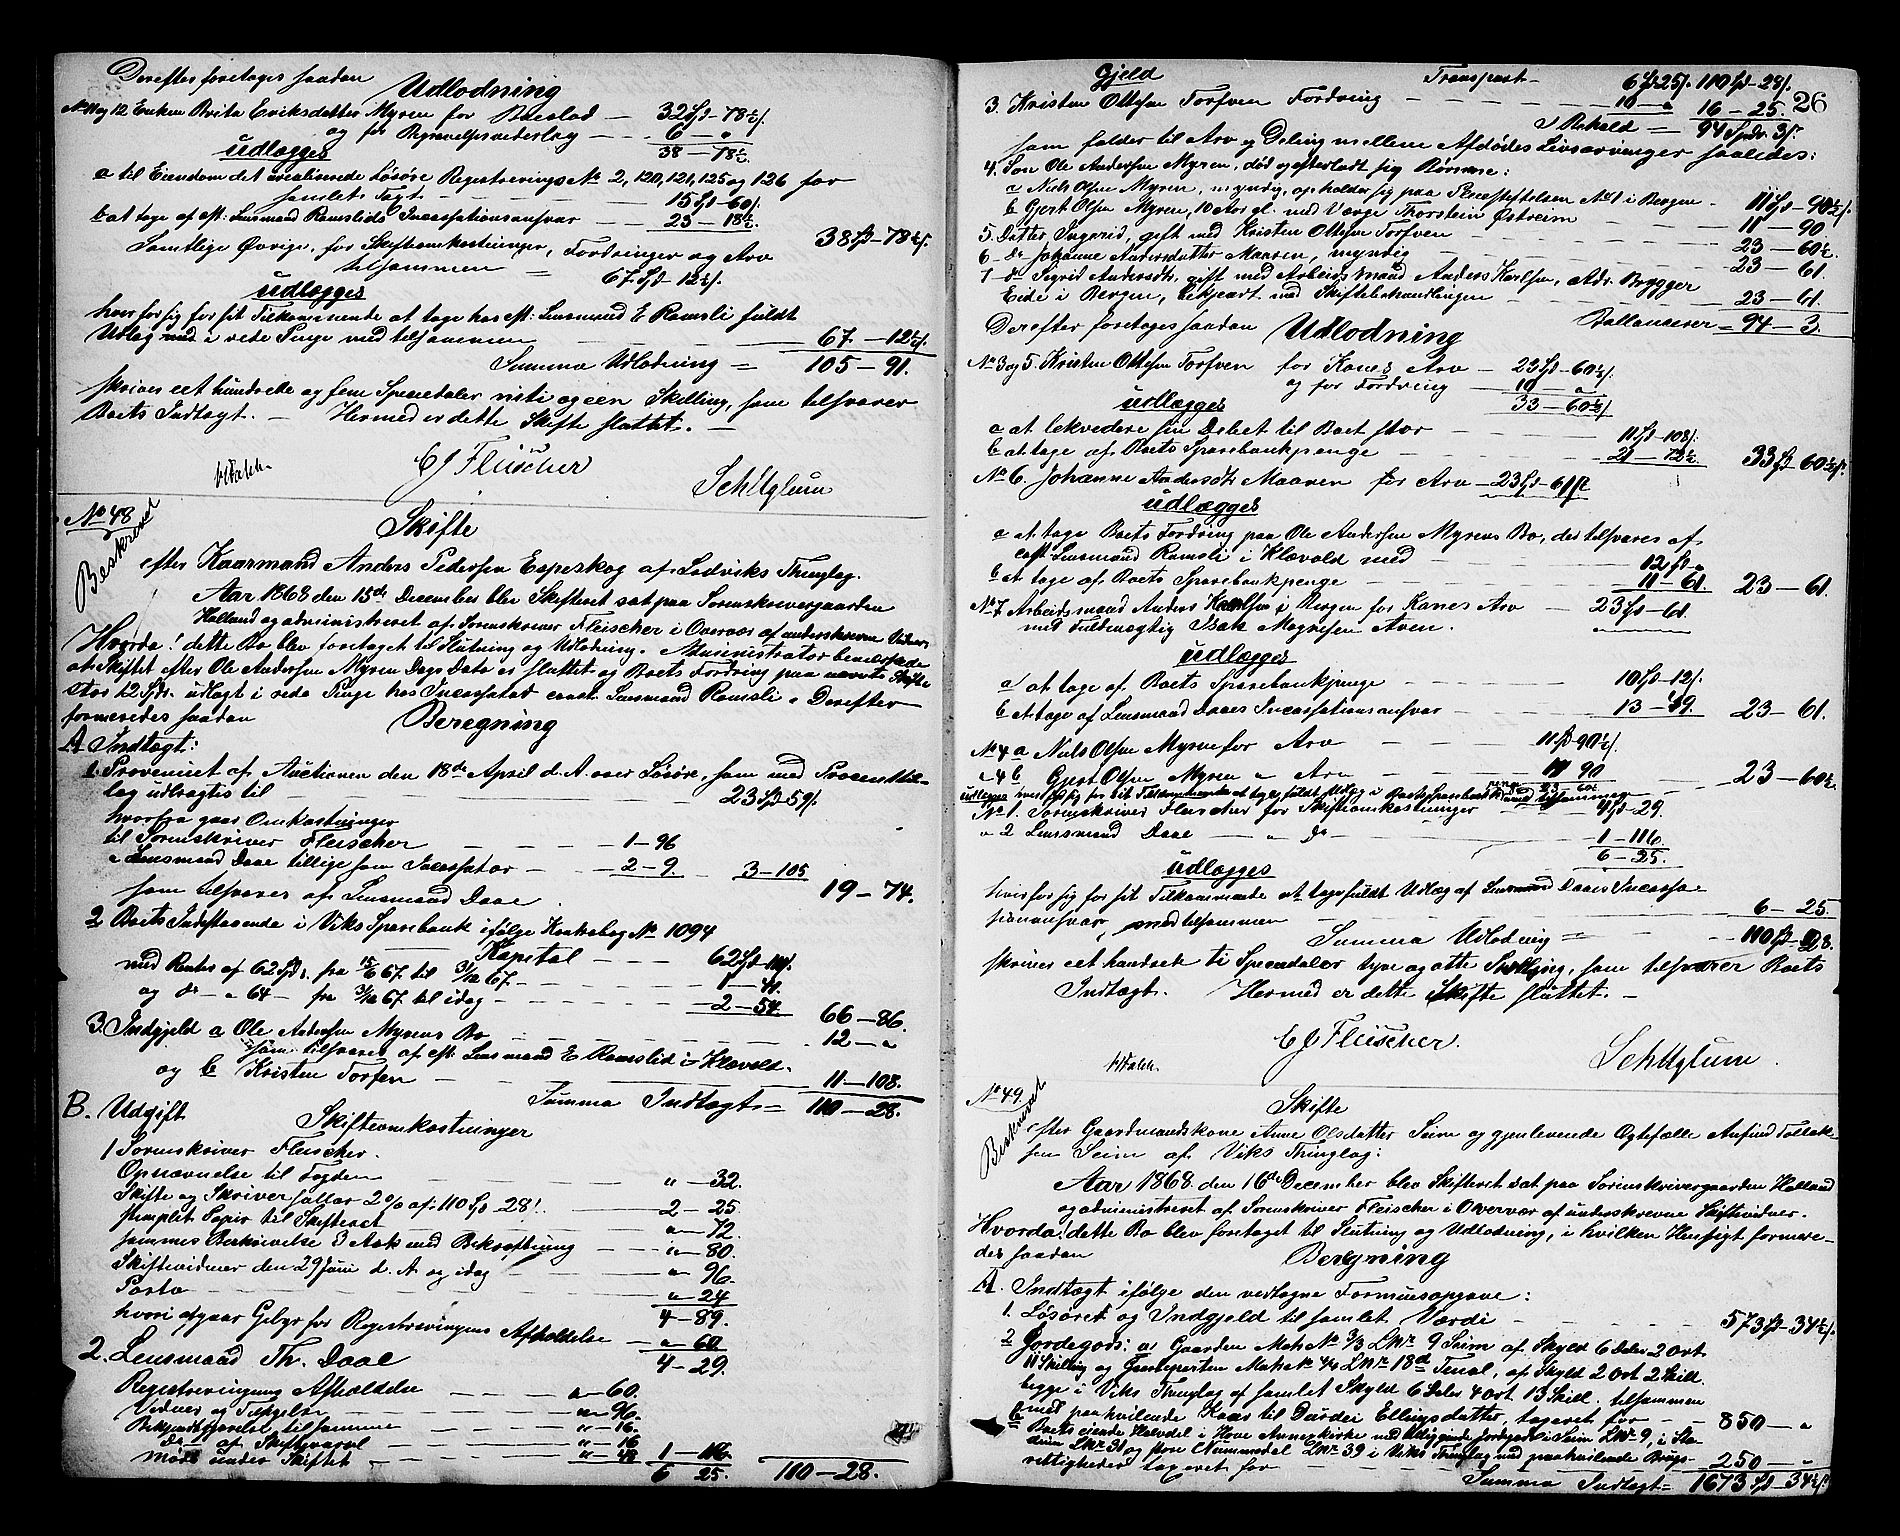 Derefter foretages saadan
Udlodning
No 11 og 12 Enken Brita Eriksdatter Myren for Boeslod — 32 Spd - 78½ s.
og for Begravelsesvederlag — 6 — "
38 — 78½
udlægges
a til Eiendom det uvaluerede Løsøre Registrerings No 2, 120, 121, 125 og 126 for
samlet Taxt — 15 Spd - 60 s.
b at tage af cst: Lensmand Ramslids Incassationsansvar — 23 — 18½
38 Spd — 78½ s.
Samtlige Øvrige, for Skifteomkostninger, Fordringer og Arv
tilsammen = 67 Spd - 12½ s.
udlægges
hver for sig for sit Tilkommende at tage hos cst: Lensmand E Ramsli fuldt
Udlæg med i rede Penge med tilsammen — 67 — 12½ s.
Summa Udlodning = 105 — 91.
skriver eet hundrede og fem Speciedaler niti og een Skilling, som tilsvarer
Boets Indtægt. — Hermed er dette Skifte sluttet. —
CJ Fleischer
No 48
Beskrevet
Skifte
efter Kaarmand Anders Pedersen Espeskog af Ladviks Thinglag.
Aar 1868 den 15de December blev Skifteret sat paa Sorenskrivergaarden
Holland og administreret af Sorenskriver Fleischer i Overvær af underskrevne Vidner.
Hvorda! dette Bo blev foretaget til Slutning og Udlodning. Administrator bemærkede
at Skiftet efter Ole Andersen Myren Dags Dato er sluttet og Boets Fordring paa nævnte Skifte
stor 12 Spdr. udlagt i rede Penge hos Incassator const Lensmand Ramsli. Derefter
formeredes saadan
Beregning
A Indtægt:
1. Provenuet af Auctionen den 18de April d. A. over Løsøre, som med Procenttil-
læg udbragtes til — 23 Spd 59 s.
hvorfra gaar Omkostninger
til Sorenskriver Fleischer — 1 — 96
" Lensmand Daae tillige som Incassator — 2 — 9. 3 — 105
som tilsvares af Lensmand Daae 19 — 74.
2 Boets Indestaaende i Viks Sparebank ifølge Kontrabog No 1094
Kapital — 62 Spd
med Renter af 62 Spd. fra 15/6 67 til 31/12 67. —
og do — " 64 — fra 31/12 67. til idag — 2 — 54. 66 — 86.
3. Indgjeld a Ole Andersen Myrens Bo — 12 — "
som tilsvares af cst Lensmand E Ramslid i Klævold.
og b Kristen Torfven — 11 — 108.
Summa Indtægt = 110 — 28.
B. Udgift
Skifteomkostninger
1 Sorenskriver Fleischer.
Opnævnelse til Fogden — " — 32.
Skifte og Skriversallar 2 % af 110 Spd 28 s. — 2 — 25.
Stemplet Papir til Skifteact — " — 72.
sammes Beskrivelse 3 Ark med Bekræftning — " — 80.
Skiftevidner den 29 Juni d. A. og idag — " — 96.
Porto — " — 24
4 — 89.
hvori afgaar Gebyr for Registreringens Afholdelse — " — 60
4 — 29.
2. Lensmand Th. Daae
Registrerings Afholdelse — " — 60.
Vidner og Tilsigelse — " — 96.
Bekjendtgjørelse tilsammen — " — 16.
do — af Skiftevarsel — " — 16
Møde under Skiftet — 1 — 116
6 25. 110 — 28.
26
Gjeld Transport — 6 Spd 25 s. 110 Spd — 28 s.
3. Kristen Ottesen Torfven Fordring — 10 — " 16 — 25.
I Behold = 94 Spdr. 3 s.
som falder til Arv og Deling mellem Afdødes Livsarvinger saaledes:
4. Søn Ole Andersen Myren, død og efterladt sig Børnene:
a Niels Olsen Myren, myndig, opholder sig paa Pleiestiftelsen No 1 i Bergen — 11 Spd — 90½ s.
b Gjert Olsen Myren, 10 Aar gl. med Værge Thorstein Østreim — 11 — 90
5. Datter Ingerid, gift med Kristen Ottesen Torfven — 23 — 60½.
6 — do Johanne Andersdatter Maaren, myndig — 23 — 61.
7 — do Sigrid Andersdtr. gift med Arbeidsmand Anders Karlsen, Adr. Brygger
Eide i Bergen, bekjendt med Skiftebehandlingen — 23 — 61.
Ballancerer = 94 — 3.
Derefter foretages saadan Udlodning
No 3 og 5. Kristen Ottesen Torfven for Kones Arv — 23 Spd — 60½ s.
og for Fordring — 10 — "
33 — 60½ s.
udlægges
a at likvidere sin Debet til Boet stor — 11 Spd — 108 s.
b at tage af Boets Sparebankpenge — 21 — 72½ 33 Spd — 60½ s.
No 6. Johanne Andersdtr Maaren for Arv — 23 Spd — 61 s.
udlægges
a at tage Boets Fordring paa Ole Andersen Myrens Bo, der tilsvares af
cst Lensmand Ramsli i Klævold med — 12 Spd "
b at tage af Boets Sparebankpenge — 11 61. 23 — 61.
No 7 Arbeidsmand Anders Karlsen i Bergen for Kones Arv — 23 Spd — 61.
ved Fuldmægtig Isak Mognesen Aven.
udlægges
a at tage af Boets Sparebankpenge — 10 Spd — 12 s.
b at tage af Lensmand Daaes Incassationsansvar — 13 — 49. 23 — 61.
No 4 a Niels Olsen Myren for Arv — 11 Spd 90½ s.
" 4 b Gjert Olsen Myren " Arv — 11 90 23 — 60½
udlægges hver for sig for sit Tilkommende at tage fuldt Udlæg i Boets Sparebankpenge med tilsammen
No 1. Sorenskriver Fleischer for Skifteomkostninger — 4 Spd — 29.
" 2 Lensmand Daae — " do — 1 — 116.
6 — 25.
udlægges
hver for sig for sit Tilkommende at tage fuldt Udlæg af Lensmand Daaes Incassa-
tionsansvar, med tilsammen — 6 — 25.
Summa Udlodning = 110 Spd — 28.
skriver eet hundrede ti Speciedaler tyve og otte Skilling, som tilsvarer Boets
Indtægt. Hermed er dette Skifte sluttet. —
CJ Fleischer.
No 49.
Beskrevet
Skifte
efter Gaardmandskone Anne Olsdatter Seim og gjenlevende Ægtefælle Anfind Tollak-
sen Seim af Viks Thinglag:
Aar 1868 den 16de December blev Skifteret sat paa Sorenskrivergaarden Holland
og administreret af Sorenskriver Fleischer i Overvær af underskrevne Skiftevidner.
Hvorda! dette Bo blev foretaget til Slutning og Udlodning, i hvilken Hensigt formere-
des saadan Beregning
A. Indtægt ifølge den vedtagne Formuesopgave:
1. Løsøret og Indgjeld til samlet Værdi — 573 Spd — 34½ s.
2 Jordegods: a Gaarden Mat. No 3/3 LNr. 9 Seim af Skyld 6 Daler 2 ort
11 Skilling og Gaardparten Mat. No 4/4 LNr. 18d Tenal, af Skyld 2 Ort 2 Skill.
begge i Viks Thinglag af samlet Skyld 6 Daler 4 ort 13 Skill. tilsammen
med paahvilende Kaar til Durdei Ellingsdatter, taxeret for — 850 — "
b Boets eiende Halvdel i Hove Annexkirke med tilliggende Jordgods i Seim LNr. 9, i Sta-
deim LNr. 31 og store Nummedal LNr. 39 i Viks Thinglag med paahvilende Brugs-
rettigheder taxeret for — 250 — "
Summa Indtægt = 1673 Spd — 34½ s.